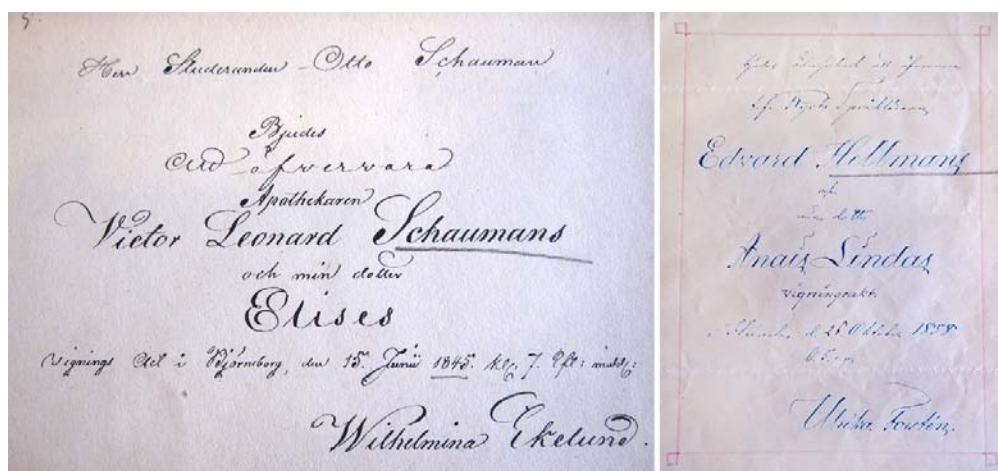 5.
Herr Studeranden Otto Schauman
Bjudes
att öfvervara
Apothekaren
Victor Leonard Schaumans
och min dotter
Elises
Vignings Act i Björneborg, den 15. Junii 1845. kl. 7. eft: midd:
Wilhelmina Ekelund.
Edvard Hellmans
och
min dotter
Anais Lindas
vigningsakt
d. 25 Oktober 1858
Ulrika